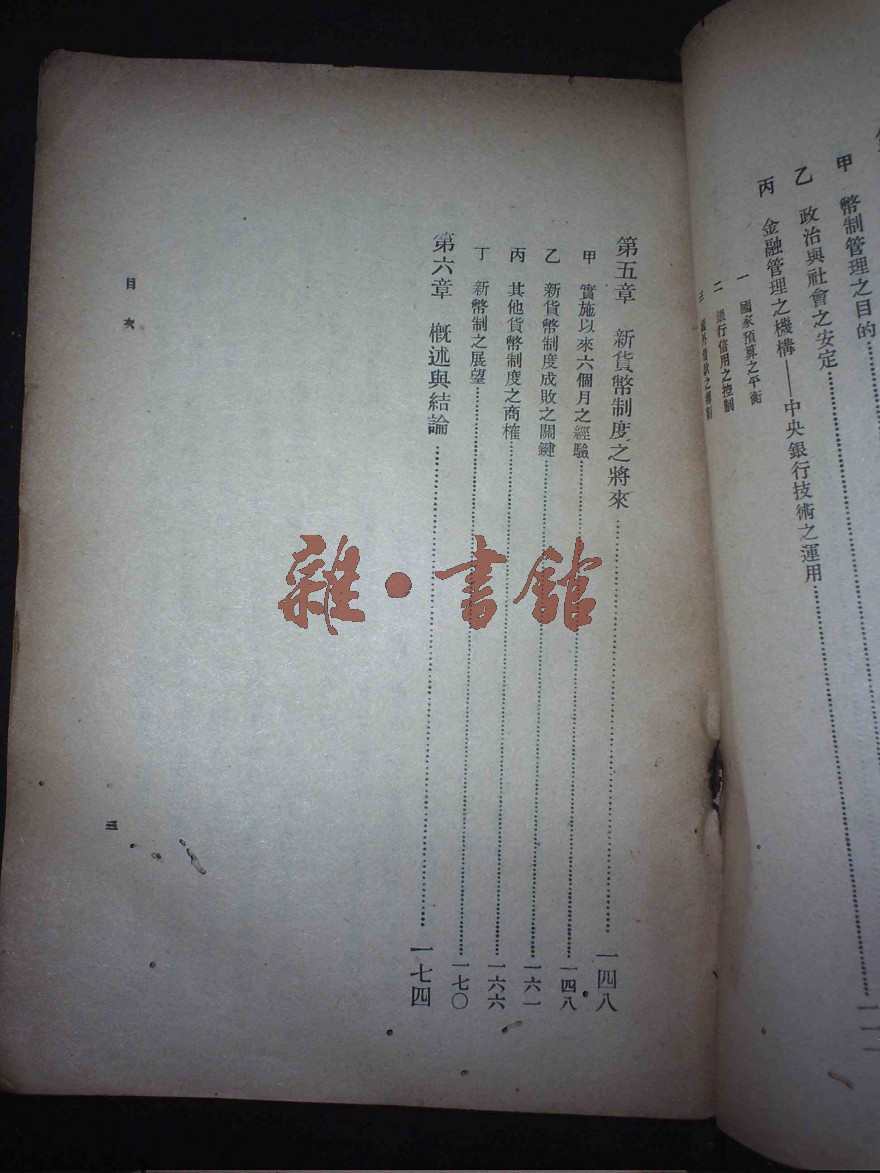 甲 幣制管理之目的
乙 政治與社會之安定
丙 金融管理之機構——中央銀行技術之運用
一 國家預算之平衡
二 銀行信用之控制
三
第五章 新貨幣制度之將來 一四八
甲 實施以來六個月之經驗 一四八
乙 新貨幣制度成敗之關鍵 一六一
丙 其他貨幣制度之商榷 一六六
丁 新幣制之展望 一七〇
第六章 概述與結論 一七四
目次
三
雜·書館